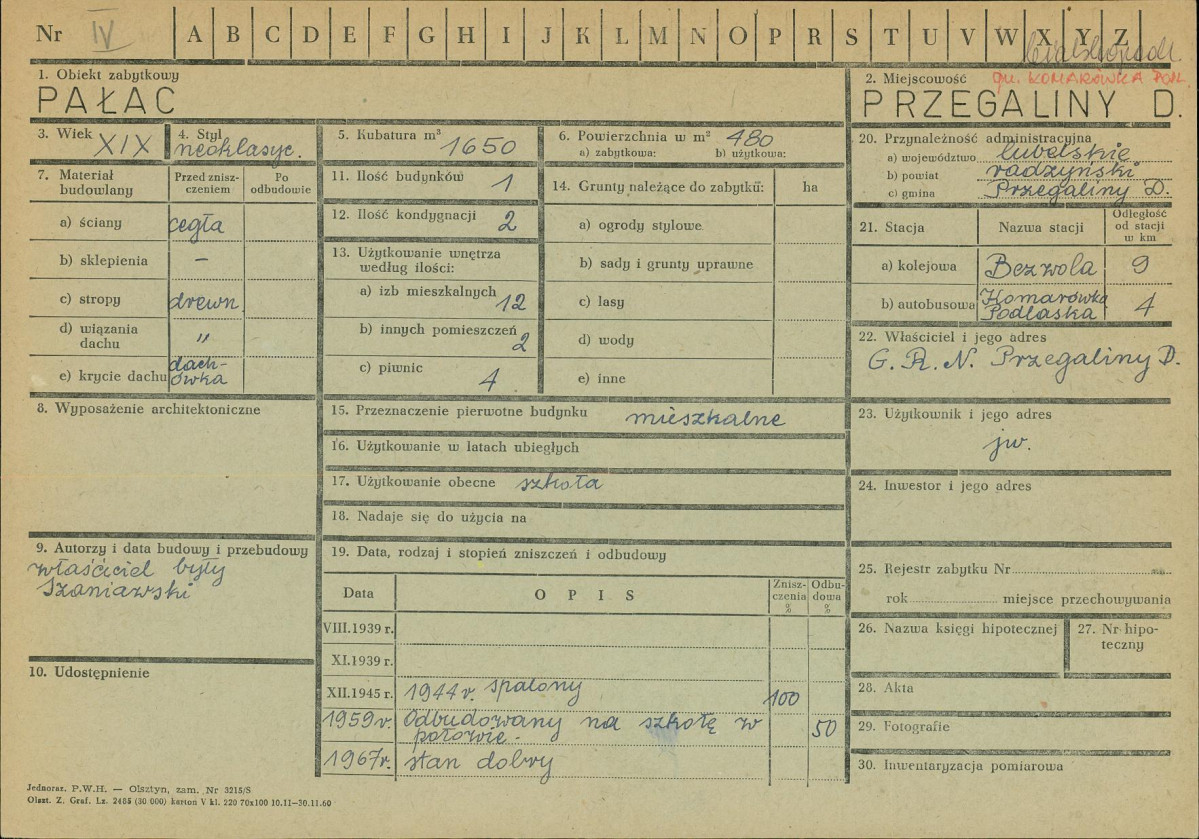 Nr IV A B C D E F G H I J K L M N O P R S T U V W X Y Z
gm. KOMARÓWKA PODL
1. Obiekt zabytkowy
PAŁAC
2. Miejscowość
PRZEGALINY D.
3. Wiek XIX
4. Styl neoklasyc.
5. Kubatura m³ 1650
6. Powierzchnia w m² 480
a) zabytkowa: b) użytkowa:
7. Materiał budowlany
Przed zniszczeniem
Po odbudowie
a) ściany cegła
b) sklepienia –
c) stropy drewn.
d) wiązania dachu "
e) krycie dachu dachówka
8. Wyposażenie architektoniczne
9. Autorzy i data budowy i przebudowy
właściciel były
Szaniawski
10. Udostępnienie
11. Ilość budynków 1
12. Ilość kondygnacji 2
13. Użytkowanie wnętrza
według ilości:
a) izb mieszkalnych 12
b) innych pomieszczeń 2
c) piwnic 4
14. Grunty należące do zabytku: ha
a) ogrody stylowe
b) sady i grunty uprawne
c) lasy
d) wody
e) inne
15. Przeznaczenie pierwotne budynku mieszkalne
16. Użytkowanie w latach ubiegłych
17. Użytkowanie obecne szkoła
18. Nadaje się do użycia na
19. Data, rodzaj i stopień zniszczeń i odbudowy
Data OPIS Zniszczenia % Odbudowa %
VIII.1939 r.
XI.1939 r.
XII.1945 r. 1944 r. spalony 100
1959 r. Odbudowany na szkołę w
połowie. 50
1967 r. stan dobry
20. Przynależność administracyjna
a) województwo lubelskie
b) powiat radzyński
c) gmina Przegaliny D.
21. Stacja Nazwa stacji Odległość od stacji w km
a) kolejowa Bezwola 9
b) autobusowa Komarówka Podlaska 4
22. Właściciel i jego adres
G. R. N. Przegaliny D.
23. Użytkownik i jego adres
jw.
24. Inwestor i jego adres
25. Rejestr zabytku Nr
rok miejsce przechowywania
26. Nazwa księgi hipotecznej
27. Nr hipoteczny
28. Akta
29. Fotografie
30. Inwentaryzacja pomiarowa
Jednoraz. P.W.H. — Olsztyn, zam. Nr 3215/S
Olszt. Z. Graf. Lz. 2485 (30 000) karton V kl. 220 70x100 10.11—30.11.60